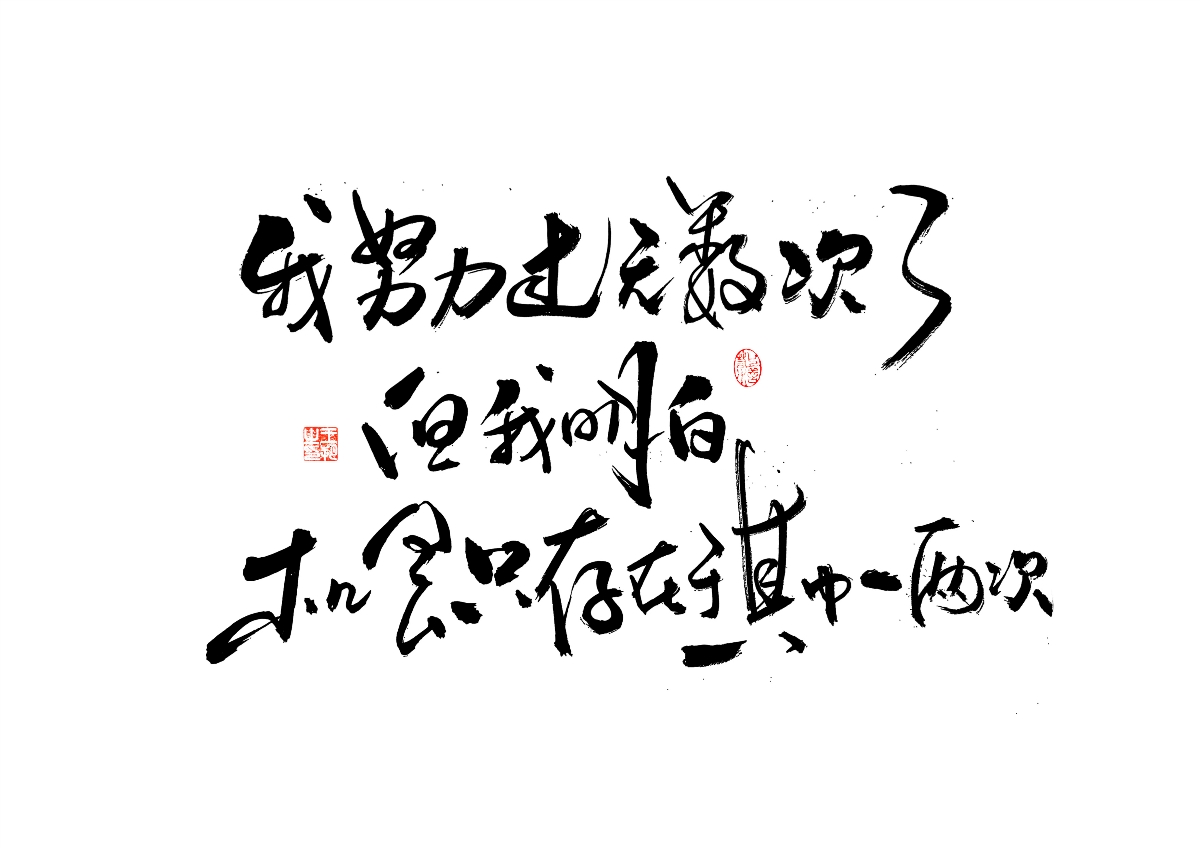 我努力过无数次了
但我明白
机会只存在于其中一两次